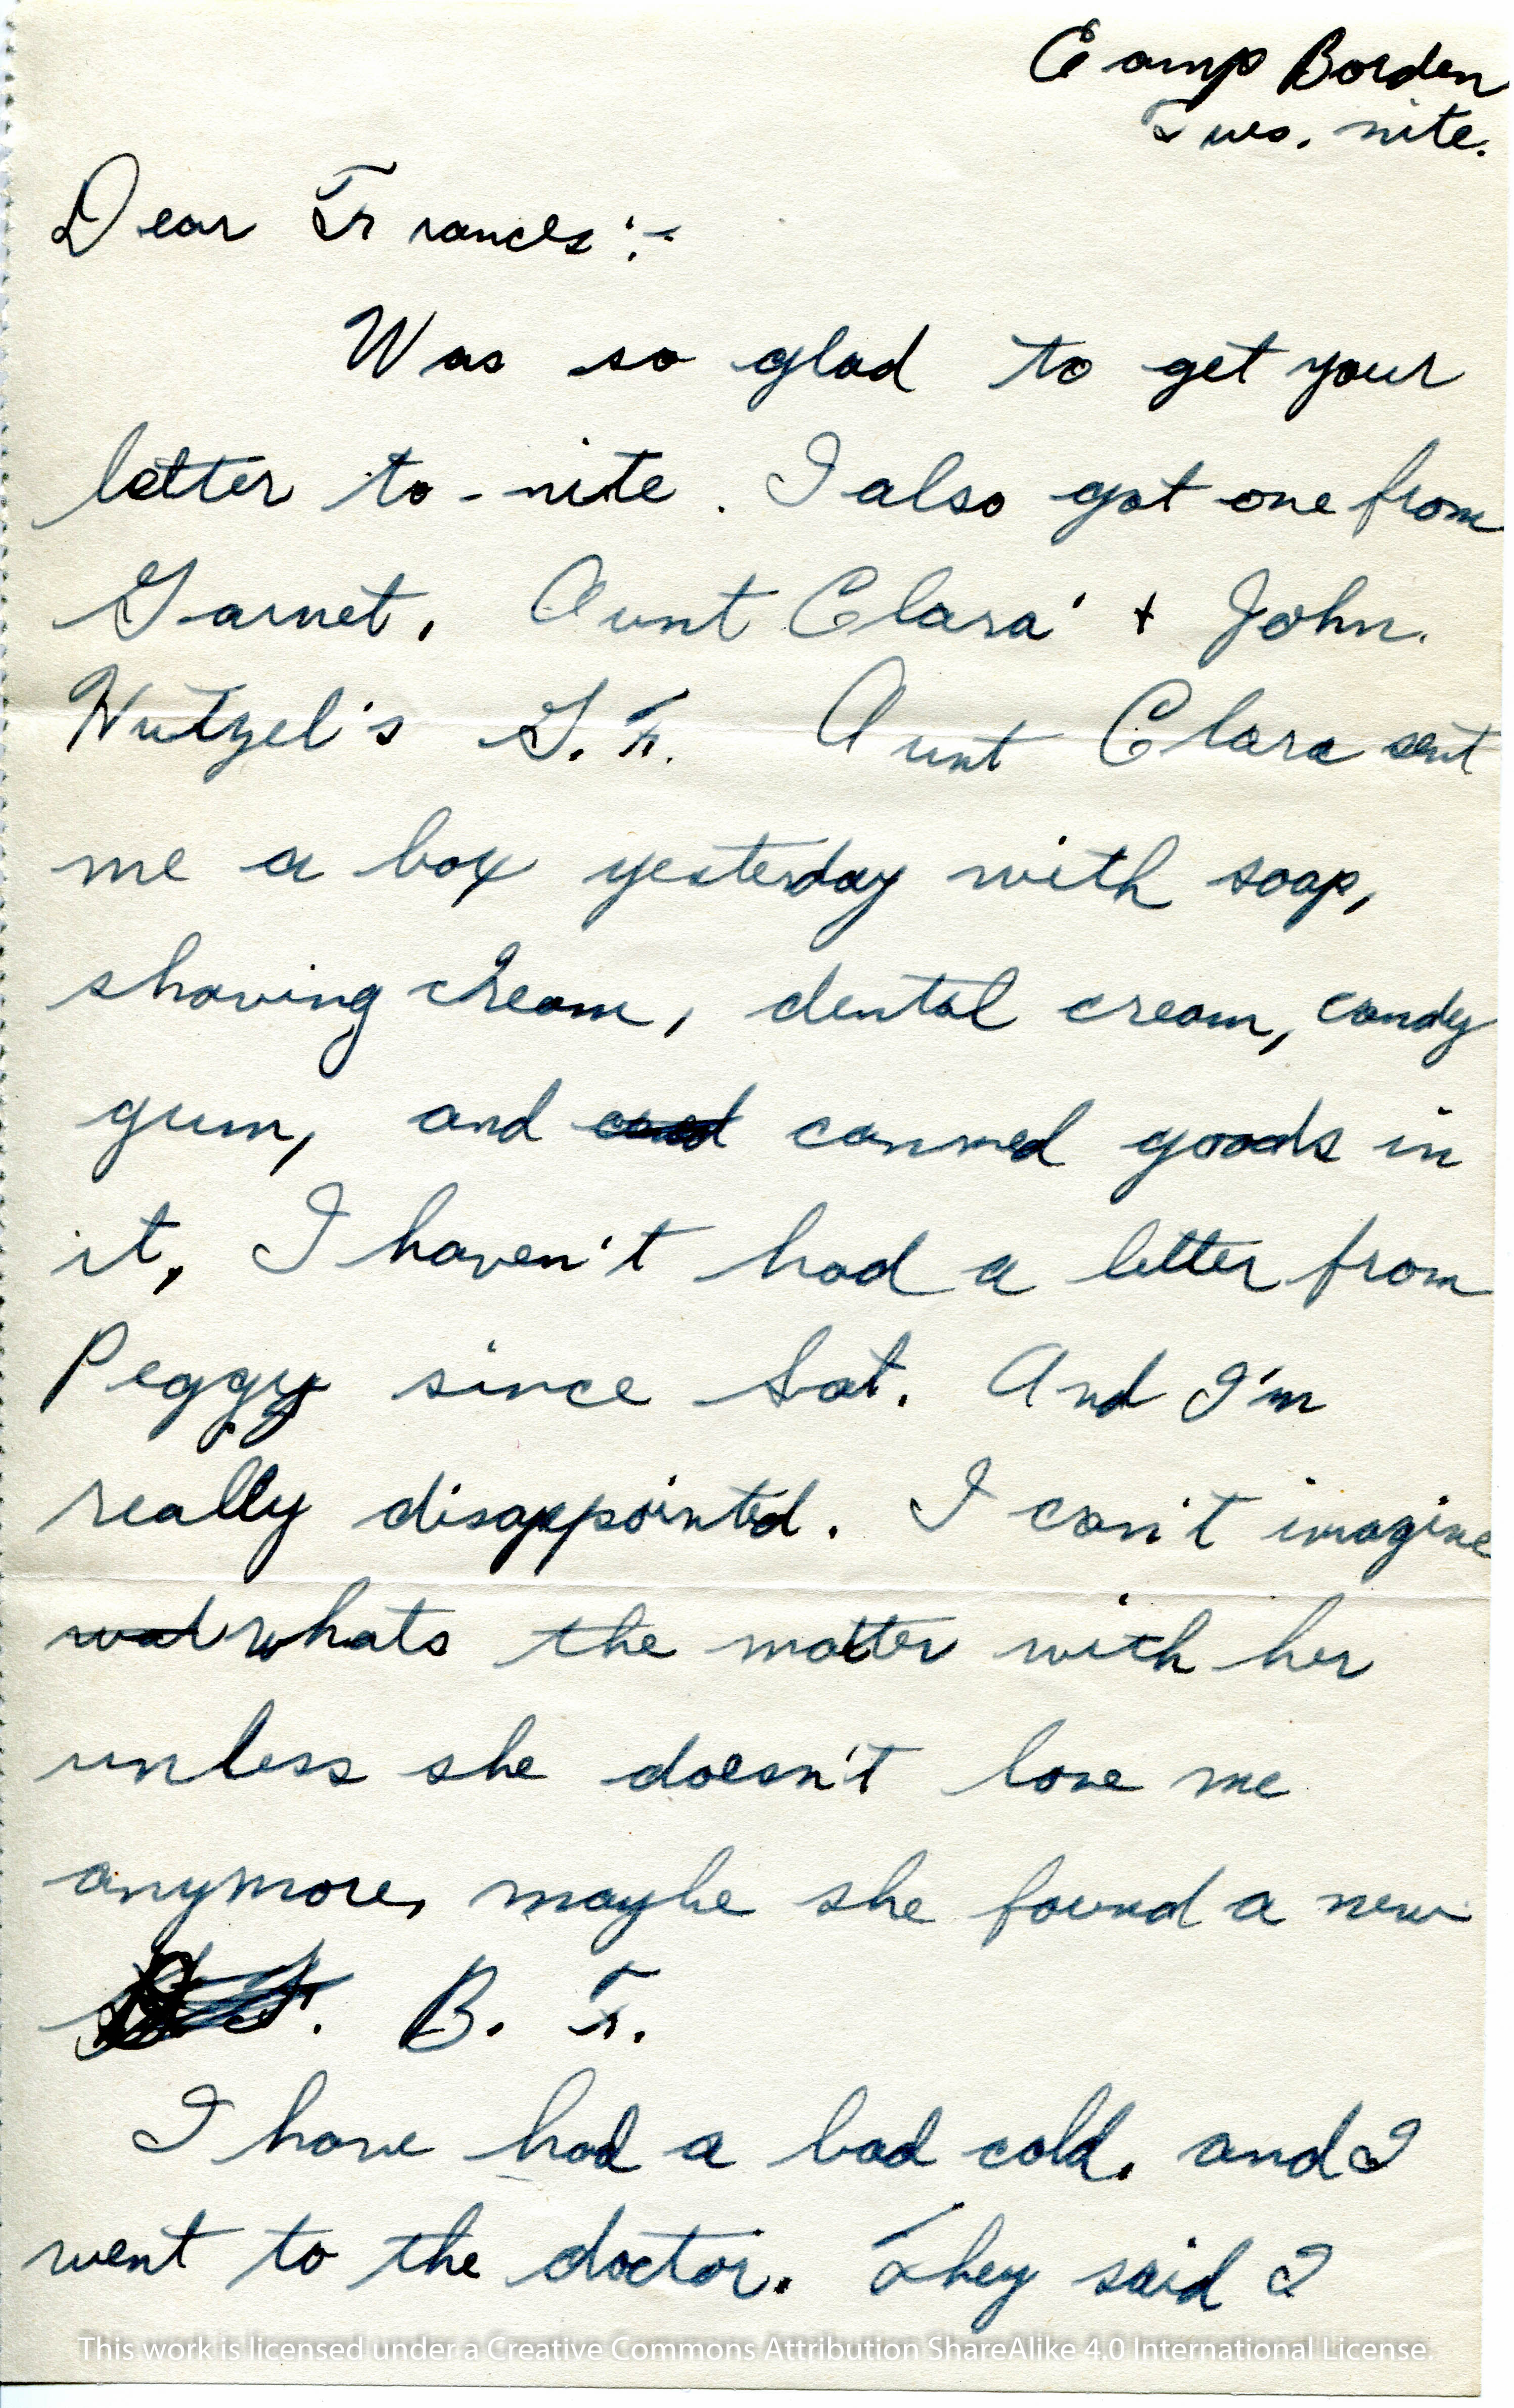 Camp Borden
Tues. nite.
Dear Frances:-
Was so glad to get your
letter to-nite. I also got one from
Garnet, Aunt Clara + John.
Hutzel's G. F. Aunt Clara sent
me a box yesterday with soap,
shaving cream, dental cream, candy
gum, and canned goods in
it, I haven't had a letter from
Peggy since Sat. And I'm
really disappointed. I can't imagine
whats the matter with her
unless she doesn't love me
anymore, maybe she found a new
B. F.
I have had a bad cold. and I
went to the doctor. They said I
This work is licensed under a Creative Commons Attribution ShareAlike 4.0 International License.